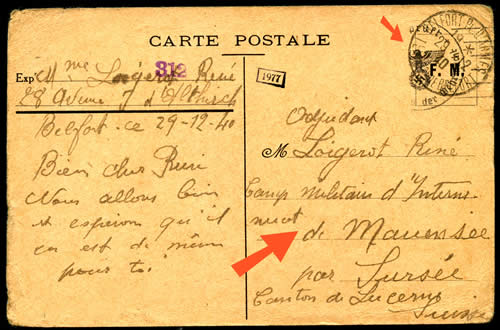 CARTE POSTALE
Exp^r M^me Loigerot René
312
28 Avenue d'Altkirch
Belfort ce 29-12-40
Bien cher René
Nous allons bien
et espérons qu'il
en est de même
pour toi
1977
F. M.
BELFORT
der
Adjudant
M Loigerot René
Camp militaire d'Interne
ment
de Mauensee
par Sursée
Canton de Lucerne
Suisse